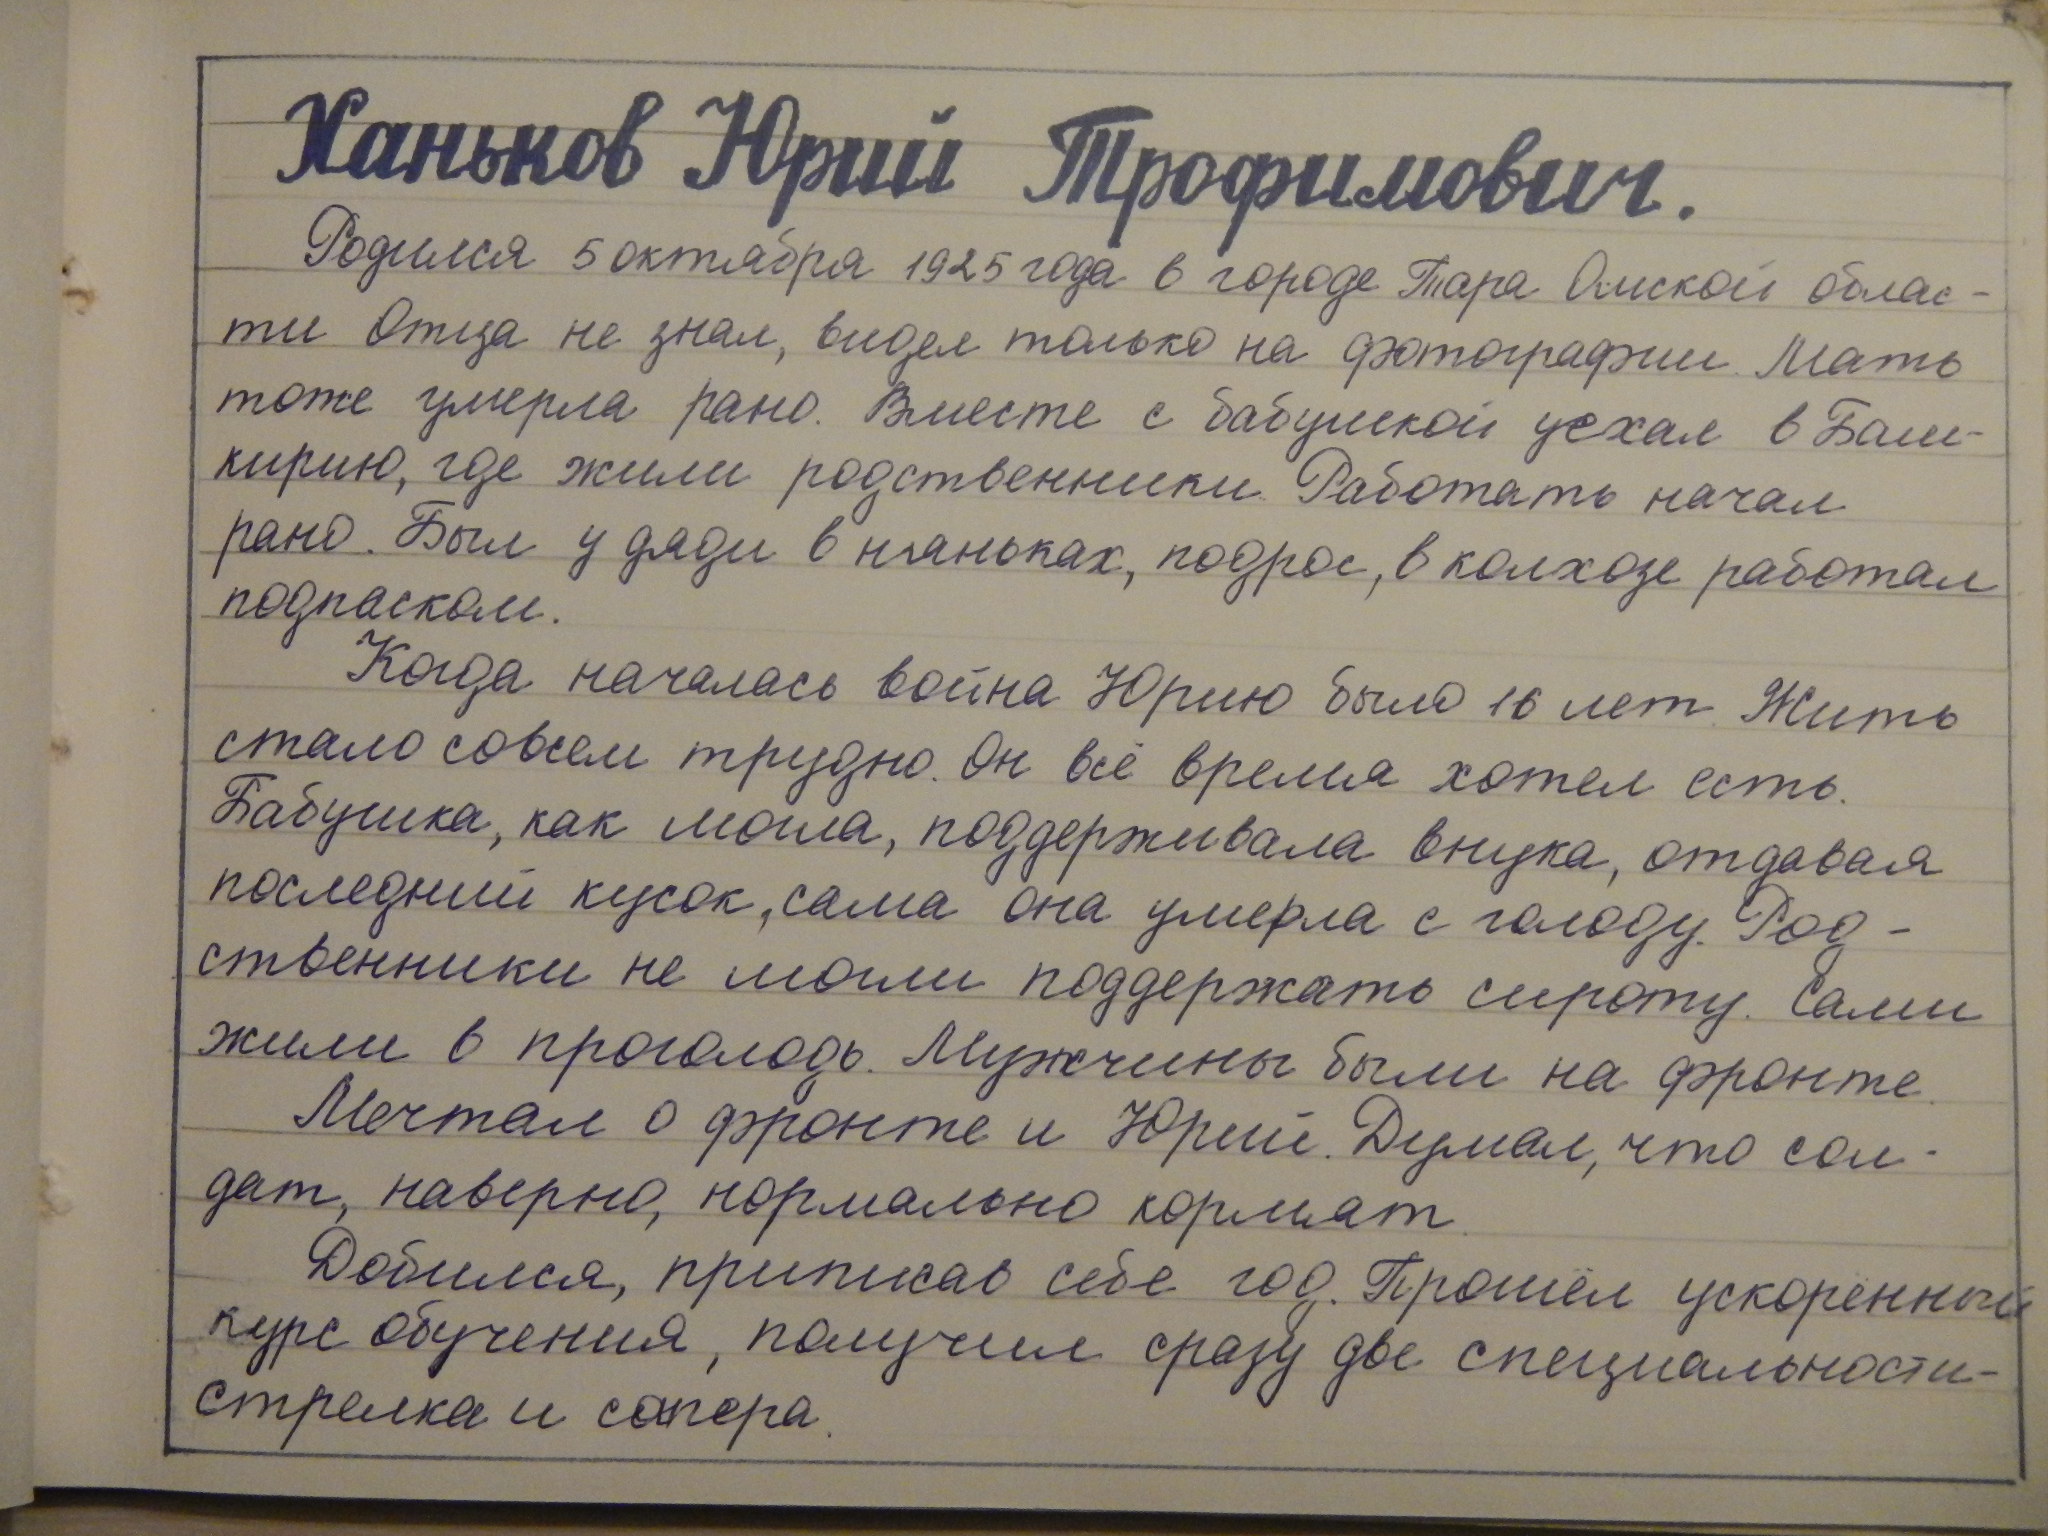 Ханьков Юрий Трофимович.
Родился 5 октября 1925 года в городе Тара Омской облас-
ти Отца не знал, видел только на фотографии. Мать
тоже умерла рано. Вместе с бабушкой уехал в Баш-
кирию, где жили родственники. Работать начал
рано. Был у дяди в няньках, подрос, в колхозе работал
подпаском.
Когда началась война Юрию было 16 лет. Жить
стало совсем трудно. Он всё время хотел есть.
Бабушка, как могла, поддерживала внука, отдавая
последний кусок, сама она умерла с голоду. Род-
ственники не могли поддержать сироту. Сами
жили в проголодь. Мужчины были на фронте.
Мечтал о фронте и Юрий. Думал, что сол-
дат, наверно, нормально кормят.
Добился, приписав себе год. Прошёл ускоренный
курс обучения, получил сразу две специальности-
стрелка и сапера.